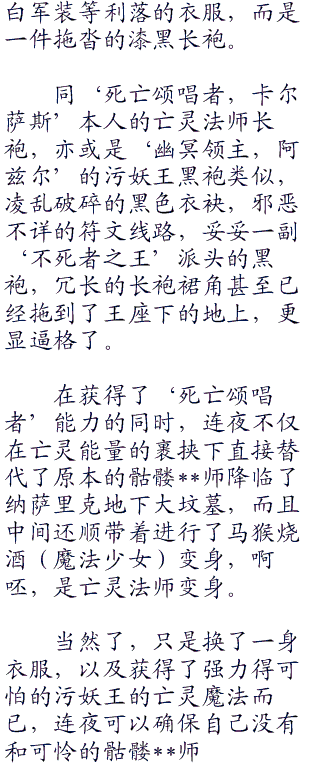 白军装等利落的衣服，而是
一件拖沓的漆黑长袍。
同‘死亡颂唱者，卡尔
萨斯’本人的亡灵法师长
袍，亦或是‘幽冥领主，阿
兹尔’的污妖王黑袍类似，
凌乱破碎的黑色衣袂，邪恶
不详的符文线路，妥妥一副
‘不死者之王’派头的黑
袍，冗长的长袍裙角甚至已
经拖到了王座下的地上，更
显逼格了。
在获得了‘死亡颂唱
者’能力的同时，连夜不仅
在亡灵能量的裹挟下直接替
代了原本的骷髅**师降临了
纳萨里克地下大坟墓，而且
中间还顺带着进行了马猴烧
酒（魔法少女）变身，啊
呸，是亡灵法师变身。
当然了，只是换了一身
衣服，以及获得了强力得可
怕的污妖王的亡灵魔法而
已，连夜可以确保自己没有
和可怜的骷髅**师